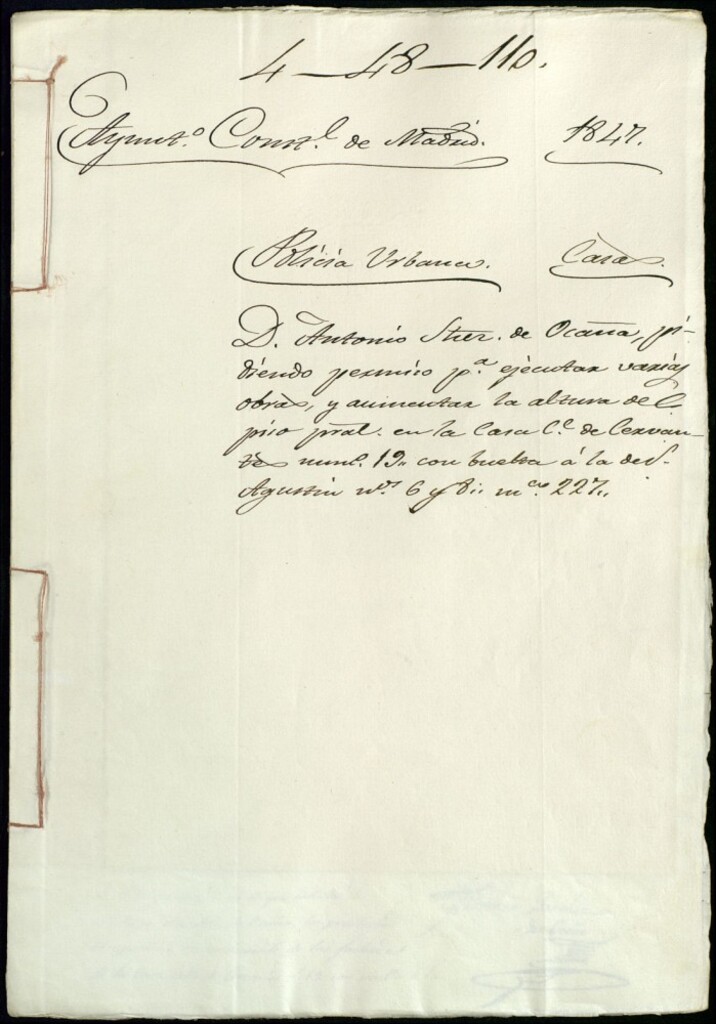 4-48-110.
Ayunt.º Const.l de Madrid. 1847.
Policia Urbana. Casas.
D. Antonio Sher. de Ocaña, pi-
diendo permiso p.a ejecutar varias
obras, y aumentar la altura del
piso pral. en la Casa C.e de Cervan-
tes num.º 19,, con buelta á la de S.
Agustin n.os 6 y 8,, m.na 227,,